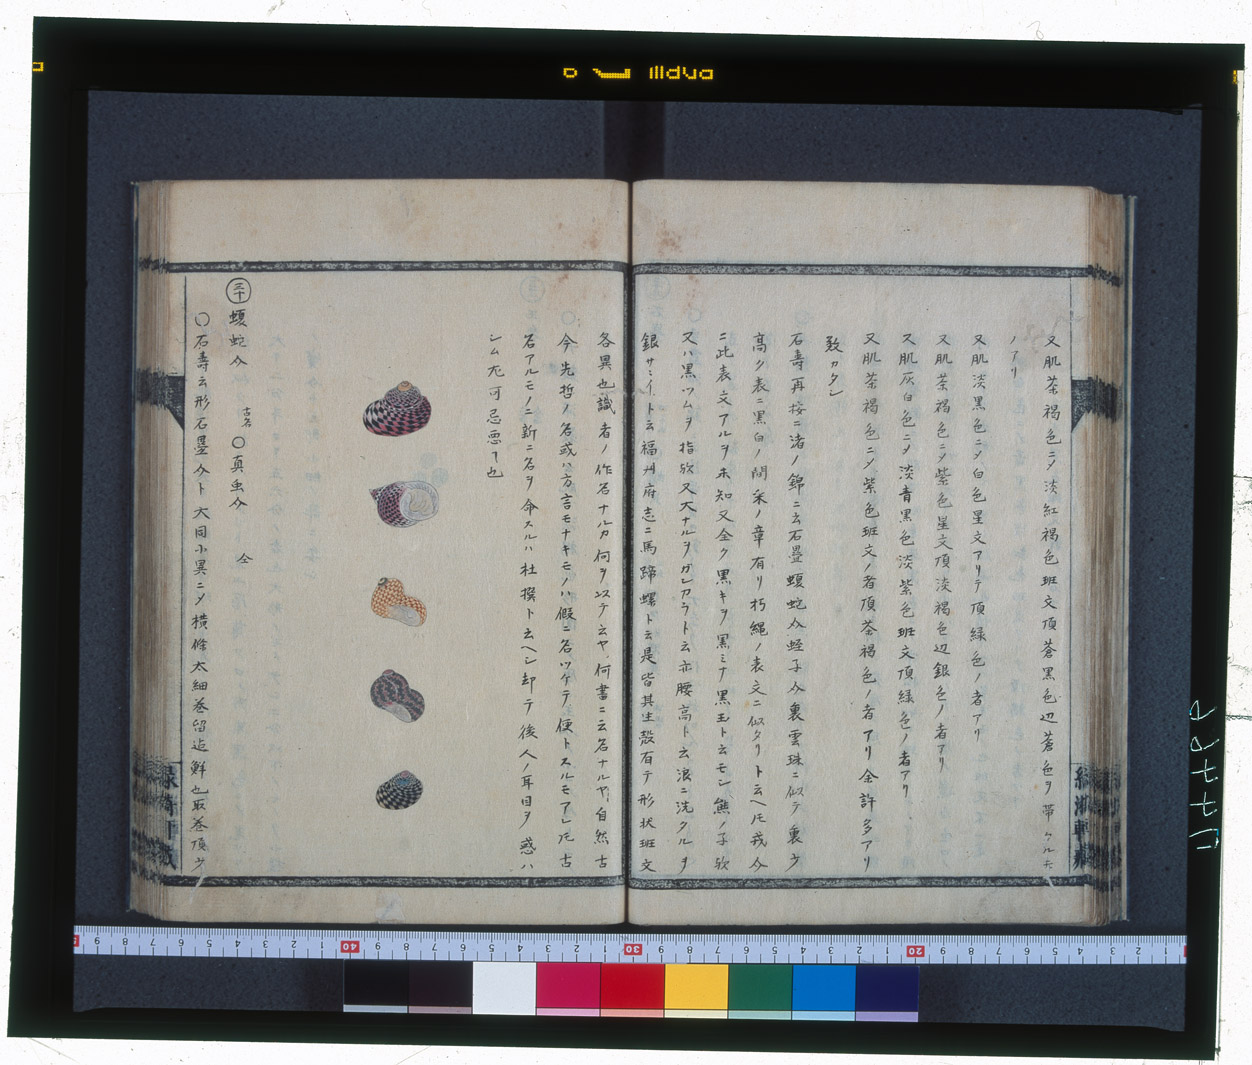 又肌茶褐色ニメ淡紅褐色班文頂蒼黒色辺蒼色ヲ帯ケルモ
ノアリ
又肌淡黒色ニメ白色星文アリテ頂緑色ノ者アリ
又肌茶褐色ニメ紫色星文頂淡褐色辺銀色ノ者アリ
又肌灰白色ニメ淡青黒色淡紫色班文頂緑色ノ者アリ
又肌茶褐色ニメ紫色班文ノ者頂茶褐色ノ者アリ余許多アリ
致カタシ
石寿再按ニ渚ノ錦ニ云石畳蝮蛇介蛭子介裏雲珠ニ似テ裏少
高ク表ニ黒白ノ間釆ノ章有リ朽縄ノ表文ニ似タリト云ヘ𪜈我介
ニ此表文アルヲ未知又全ク黒キヲ黒ミナ黒玉ト云モシ熊ノ子欤
又ハ黒ツムヲ指欤又大ナルヲガンガラト云亦腰高ト云浪ニ洗タルヲ
銀サミイト云福州府志ニ馬蹄螺ト云是皆其生殻有テ形状班文
各異也識者ノ作名ナルカ何ヲ以テ云ヤ何書ニ云名ナルヤ自然古
今先哲ノ名或ハ方言モナキモノハ假ニ名ツケテ便トスルモアレ𪜈古
名アルモノニ新ニ名ヲ命スルハ杜撰ト云ヘシ却テ後人ノ耳目ヲ惑ハ
シム尤可忌悪丁也
三十 蝮蛇介 古名 〇真虫介 仝
〇石寿云形石畳介ト大同小異ニメ横條太細巻留迠鮮也取巻頂少